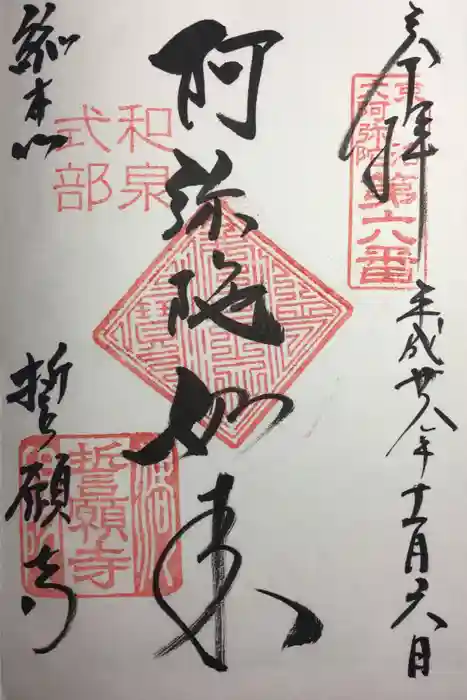 奉拝
平成廿八年十一月六日
京洛
六阿弥陀
第六番
阿弥陀如来
和泉
式部
総本山
誓願寺
誓願寺